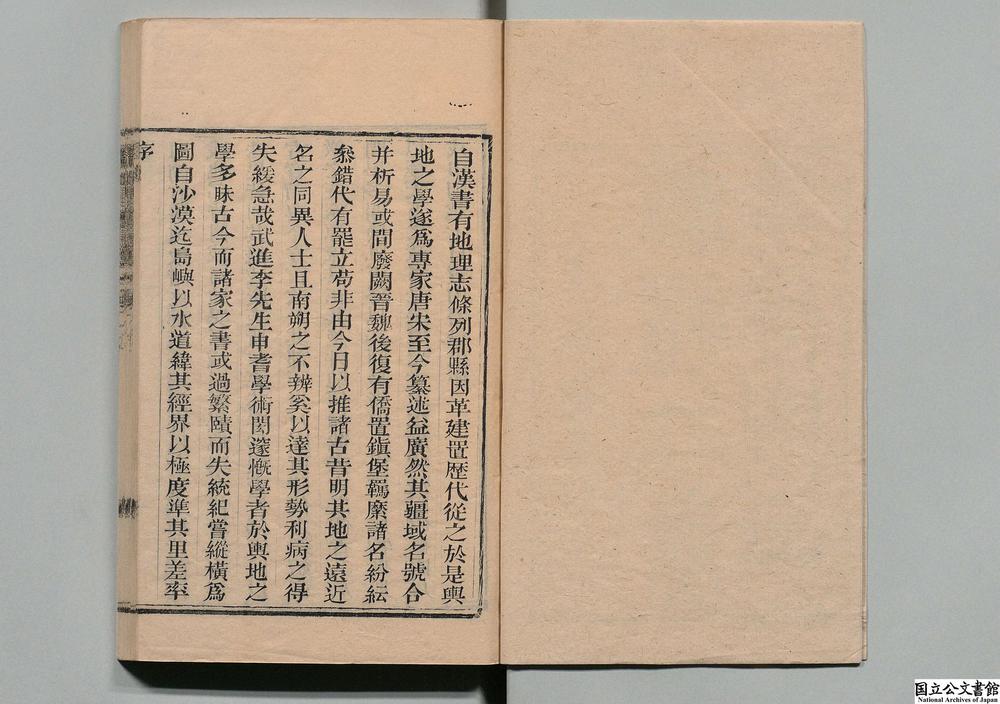 自漢書有地理志條列郡縣因革建置歷代從之於是輿
地之學遂爲專家唐宋至今纂述益廣然其疆域名號合
并析易或間廢闕晉魏後復有僑置鎭堡羈縻諸名紛紜
叅錯代有罷立苟非由今日以推諸古昔明其地之遠近
名之同異人士且南朔之不辨奚以達其形勢利病之得
失緩急哉武進李先生申耆學術閎邃慨學者於輿地之
學多昧古今而諸家之書或過繁賾而失統紀嘗縱橫爲
圖自沙漠迄島嶼以水道緯其經界以極度準其里差率
序
国立公文書館
National Archives of Japan